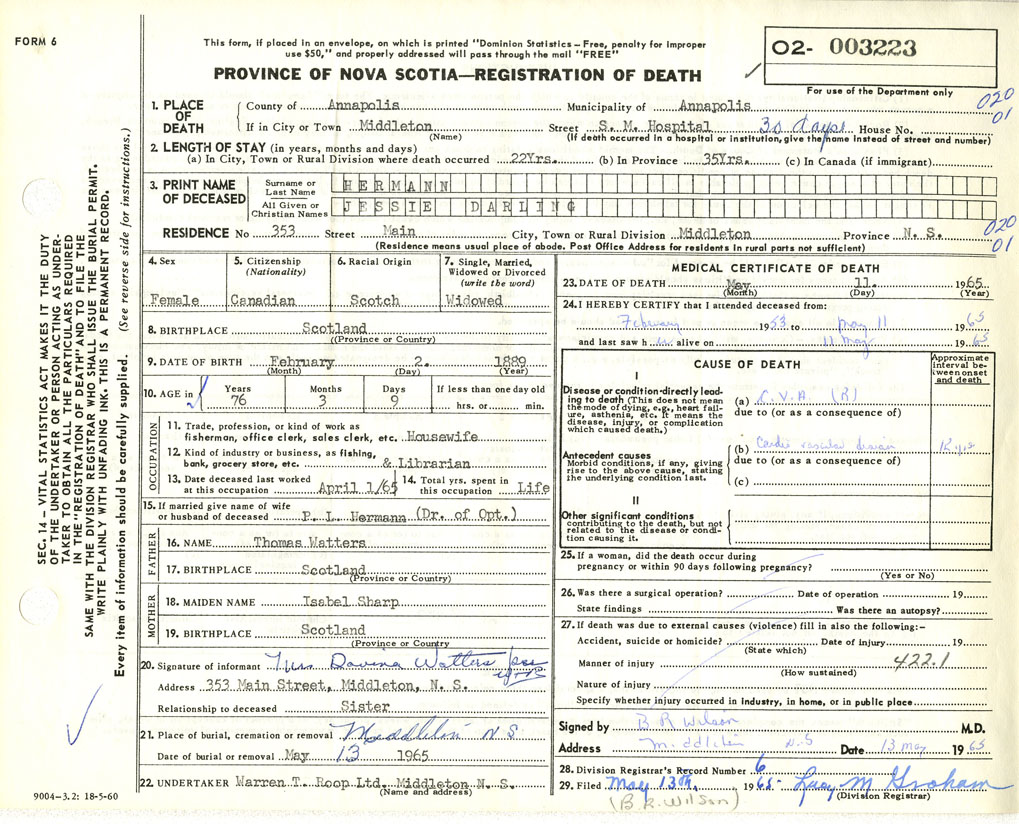 FORM 6
This form, if placed in an envelope, on which is printed "Dominion Statistics – Free, penalty for improper
use $50," and properly addressed will pass through the mail "FREE"
PROVINCE OF NOVA SCOTIA—REGISTRATION OF DEATH
02- 003223
For use of the Department only
020
01
1. PLACE OF DEATH
County of Annapolis Municipality of Annapolis
If in City or Town Middleton Street S. M. Hospital 30 days House No.
(Name) (If death occurred in a hospital or institution, give the name instead of street and number)
2. LENGTH OF STAY (in years, months and days)
(a) In City, Town or Rural Division where death occurred 22Yrs. (b) In Province 35Yrs. (c) In Canada (if immigrant)
3. PRINT NAME OF DECEASED
Surname or Last Name HERMANN
All Given or Christian Names JESSIE DARLING
020
01
RESIDENCE No 353 Street Main City, Town or Rural Division Middleton Province N. S.
(Residence means usual place of abode. Post Office Address for residents in rural parts not sufficient)
4. Sex
Female
5. Citizenship
(Nationality)
Canadian
6. Racial Origin
Scotch
7. Single, Married,
Widowed or Divorced
(write the word)
Widowed
8. BIRTHPLACE Scotland
(Province or Country)
9. DATE OF BIRTH February 2. 1889
(Month) (Day) (Year)
10. AGE in
Years Months Days If less than one day old
76 3 9 hrs. or min.
OCCUPATION
11. Trade, profession, or kind of work as
fisherman, office clerk, sales clerk, etc. Housewife
12. Kind of industry or business, as fishing,
bank, grocery store, etc. & Librarian
13. Date deceased last worked
at this occupation April 1/65
14. Total yrs. spent in
this occupation Life
15. If married give name of wife
or husband of deceased P. L. Hermann (Dr. of Opt.)
FATHER
16. NAME Thomas Watters
17. BIRTHPLACE Scotland
(Province or Country)
MOTHER
18. MAIDEN NAME Isabel Sharp
19. BIRTHPLACE Scotland
(Province or Country)
20. Signature of informant Mrs Davina Watters
Address 353 Main Street, Middleton, N. S.
Relationship to deceased Sister
21. Place of burial, cremation or removal Middleton N S
Date of burial or removal May 13 1965
22. UNDERTAKER Warren T. Roop Ltd. Middleton N. S.
(Name and address)
MEDICAL CERTIFICATE OF DEATH
23. DATE OF DEATH May 11. 1965
(Month) (Day) (Year)
24. I HEREBY CERTIFY that I attended deceased from:
February 1953 to May 11 1965
and last saw h er alive on 11 May 1965
CAUSE OF DEATH
Approximate interval between onset and death
I
Disease or condition directly leading to death (This does not mean the mode of dying, e.g., heart failure, asthenia, etc. It means the disease, injury, or complication which caused death.)
(a) C.V.A. (R)
due to (or as a consequence of)
Antecedent causes
Morbid conditions, if any, giving rise to the above cause, stating the underlying condition last.
(b) Cardio vascular disease
due to (or as a consequence of)
(c)
II
Other significant conditions
contributing to the death, but not related to the disease or condition causing it.
25. If a woman, did the death occur during
pregnancy or within 90 days following pregnancy?
(Yes or No)
26. Was there a surgical operation? Date of operation 19
State findings Was there an autopsy?
27. If death was due to external causes (violence) fill in also the following:-
Accident, suicide or homicide? Date of injury 19
(State which)
Manner of injury 422.1
(How sustained)
Nature of injury
Specify whether injury occurred in industry, in home, or in public place
Signed by B R Wilson M.D.
Address Middleton N.S Date 13 May 1965
28. Division Registrar's Record Number 6
29. Filed May 13th, 1965 Lucy M Graham
(B.R. Wilson) (Division Registrar)
SEC. 14 – VITAL STATISTICS ACT MAKES IT THE DUTY
OF THE UNDERTAKER OR PERSON ACTING AS UNDER-
TAKER TO OBTAIN ALL THE PARTICULARS REQUIRED
IN THE "REGISTRATION OF DEATH" AND TO FILE THE
SAME WITH THE DIVISION REGISTRAR WHO SHALL ISSUE THE BURIAL PERMIT.
WRITE PLAINLY WITH UNFADING INK. THIS IS A PERMANENT RECORD.
Every item of information should be carefully supplied. (See reverse side for instructions.)
9004-3.2: 18-5-60